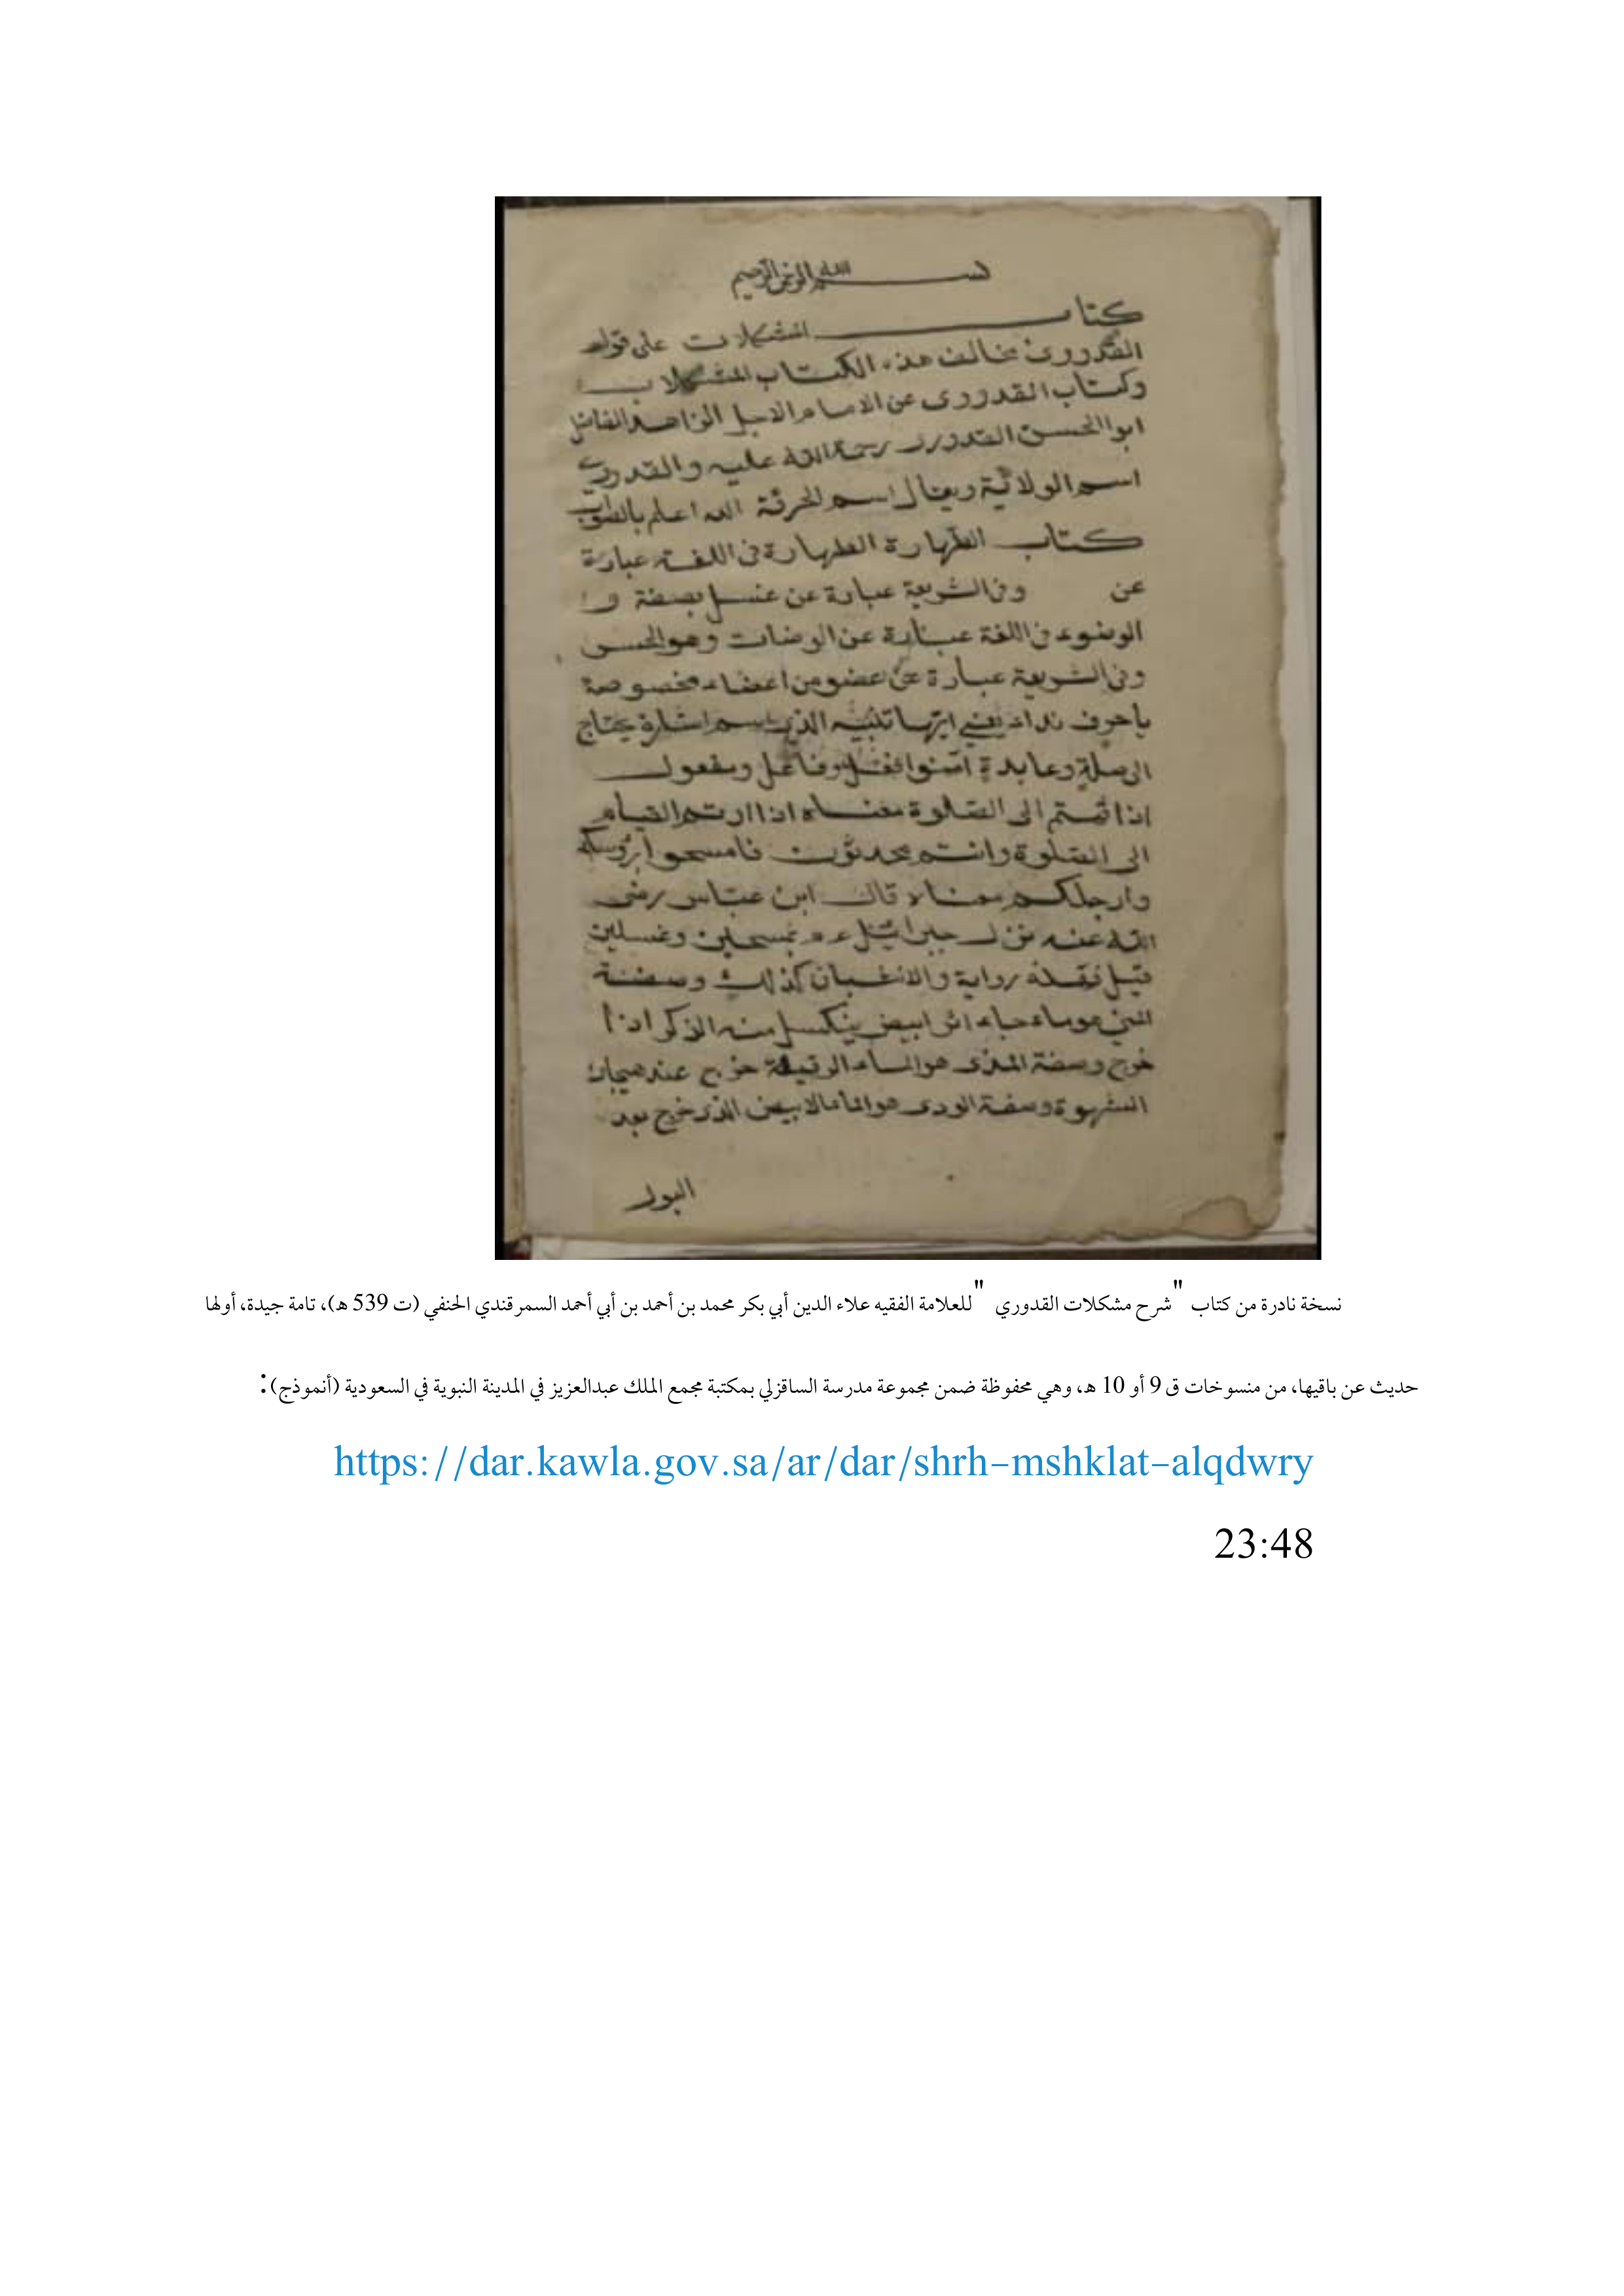 بســـــم الله الرحمن الرحيم
كتاب المشكلات على قول
القدورى مخالف هذه الكتاب المشكلات
وكتاب القدورى عن الامام الاجل الزاهد الفاضل
ابو الحسن القدورى رحمة الله عليه والقدورى
اسم الولائية ويقال اسم الحرثة الله اعلم بالصواب
كتاب الطهارة الطهارة فى اللغة عبارة
عن وفى الشريعة عبارة عن غسل بصفة
الوضوء فى اللغة عبارة عن الوضات وهو الحسن
وفى الشريعة عبارة عن عضو من اعضاء مخصوصة
يا حرف نداء يعنى ايها تنبيه الذين اسم اشارة يحتاج
الى صلة وعايدة امنوا فعل وفاعل ومفعول
اذا قمتم الى الصلوة معناه اذا اردتم القيام
الى الصلوة وانتم محدثون فامسحوا برؤسكم
وارجلكم معناه قال ابن عباس رضى
الله عنه نزل جبرائيل عم بمسحين وغسلين
قيل فقله رواية والانغسان كذلك وصفة
المنى هو ماء ابيض ينكسل منه الذكر اذا
خرج وصفة المذى هو الماء الرقيقة خرج عند هيجان
الشهوة وصفة الودى هو الماء الابيض الذى خرج بعد
البول
نسخة نادرة من كتاب "شرح مشكلات القدوري" للعلامة الفقيه علاء الدين أبي بكر محمد بن أحمد بن أبي أحمد السمرقندي الحنفي (ت 539 ه)، تامة جيدة، أولها
حديث عن باقيها، من منسوخات ق 9 أو 10 ه، وهي محفوظة ضمن مجموعة مدرسة الساقزلي بمكتبة مجمع الملك عبدالعزيز في المدينة النبوية في السعودية (أنموذج):
https://dar.kawla.gov.sa/ar/dar/shrh-mshklat-alqdwry
23:48